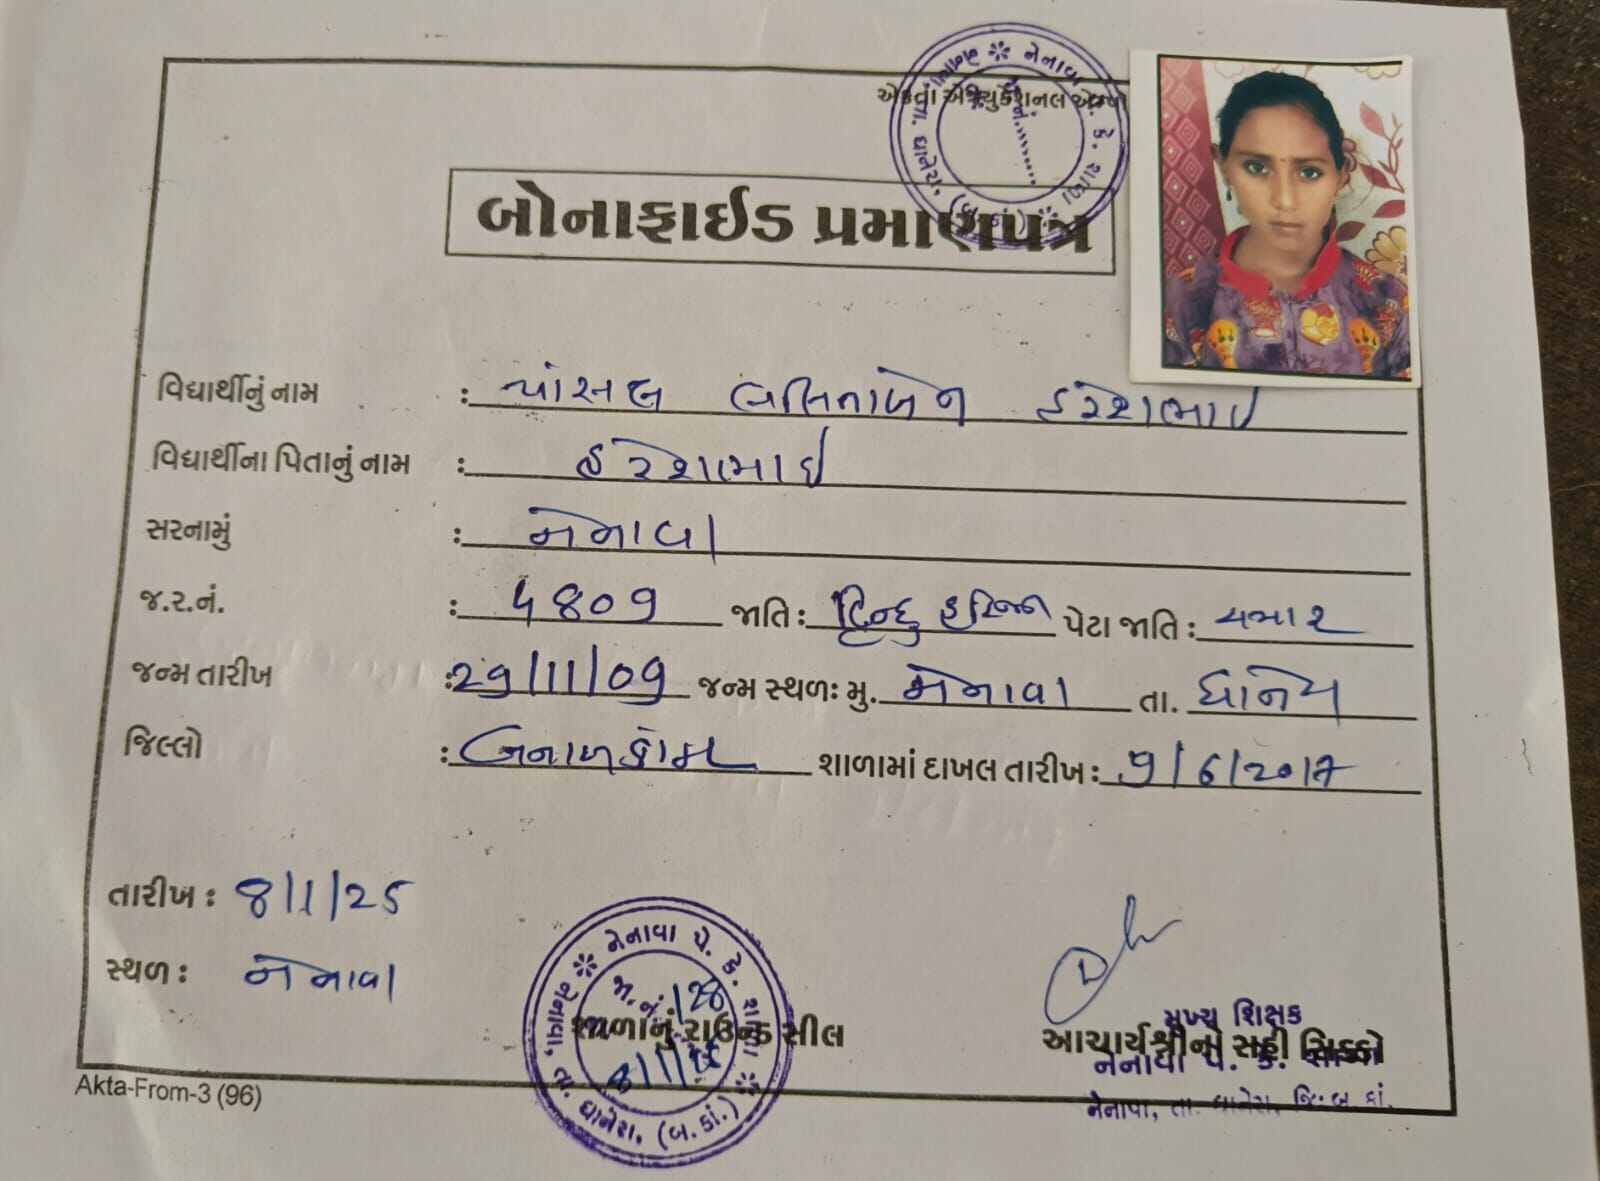 એકતા એજ્યુકેશનલ એમ્પો
બોનાફાઈડ પ્રમાણપત્ર
વિદ્યાર્થીનું નામ : હરેશભાઈ
વિદ્યાર્થીના પિતાનું નામ : હરેશભાઈ
સરનામું : નેનાવા
જ.ર.નં. : ૫૪૦૧ જાતિ : હિન્દુ હરિજન પેટા જાતિ : ચમાર
જન્મ તારીખ : 29/11/09 જન્મ સ્થળ: મુ. નેનાવા તા. ધાનેરા
જિલ્લો : બનાસકાંઠા શાળામાં દાખલ તારીખ : 9/6/2017
તારીખ : 8/1/25
સ્થળ : નેનાવા
નેનાવા પે. કે. શાળા
નેનાવા, તા. ધાનેરા. (બ.કાં.)
જા.નં. 128
8/1/25
શાળાનું રાઉન્ડ સીલ
મુખ્ય શિક્ષક
આચાર્યશ્રીની સહી સિક્કો
નેનાવા પે. કે. શાળા
નેનાવા, તા. ધાનેરા, જિ. બ. કાં.
Akta-From-3 (96)